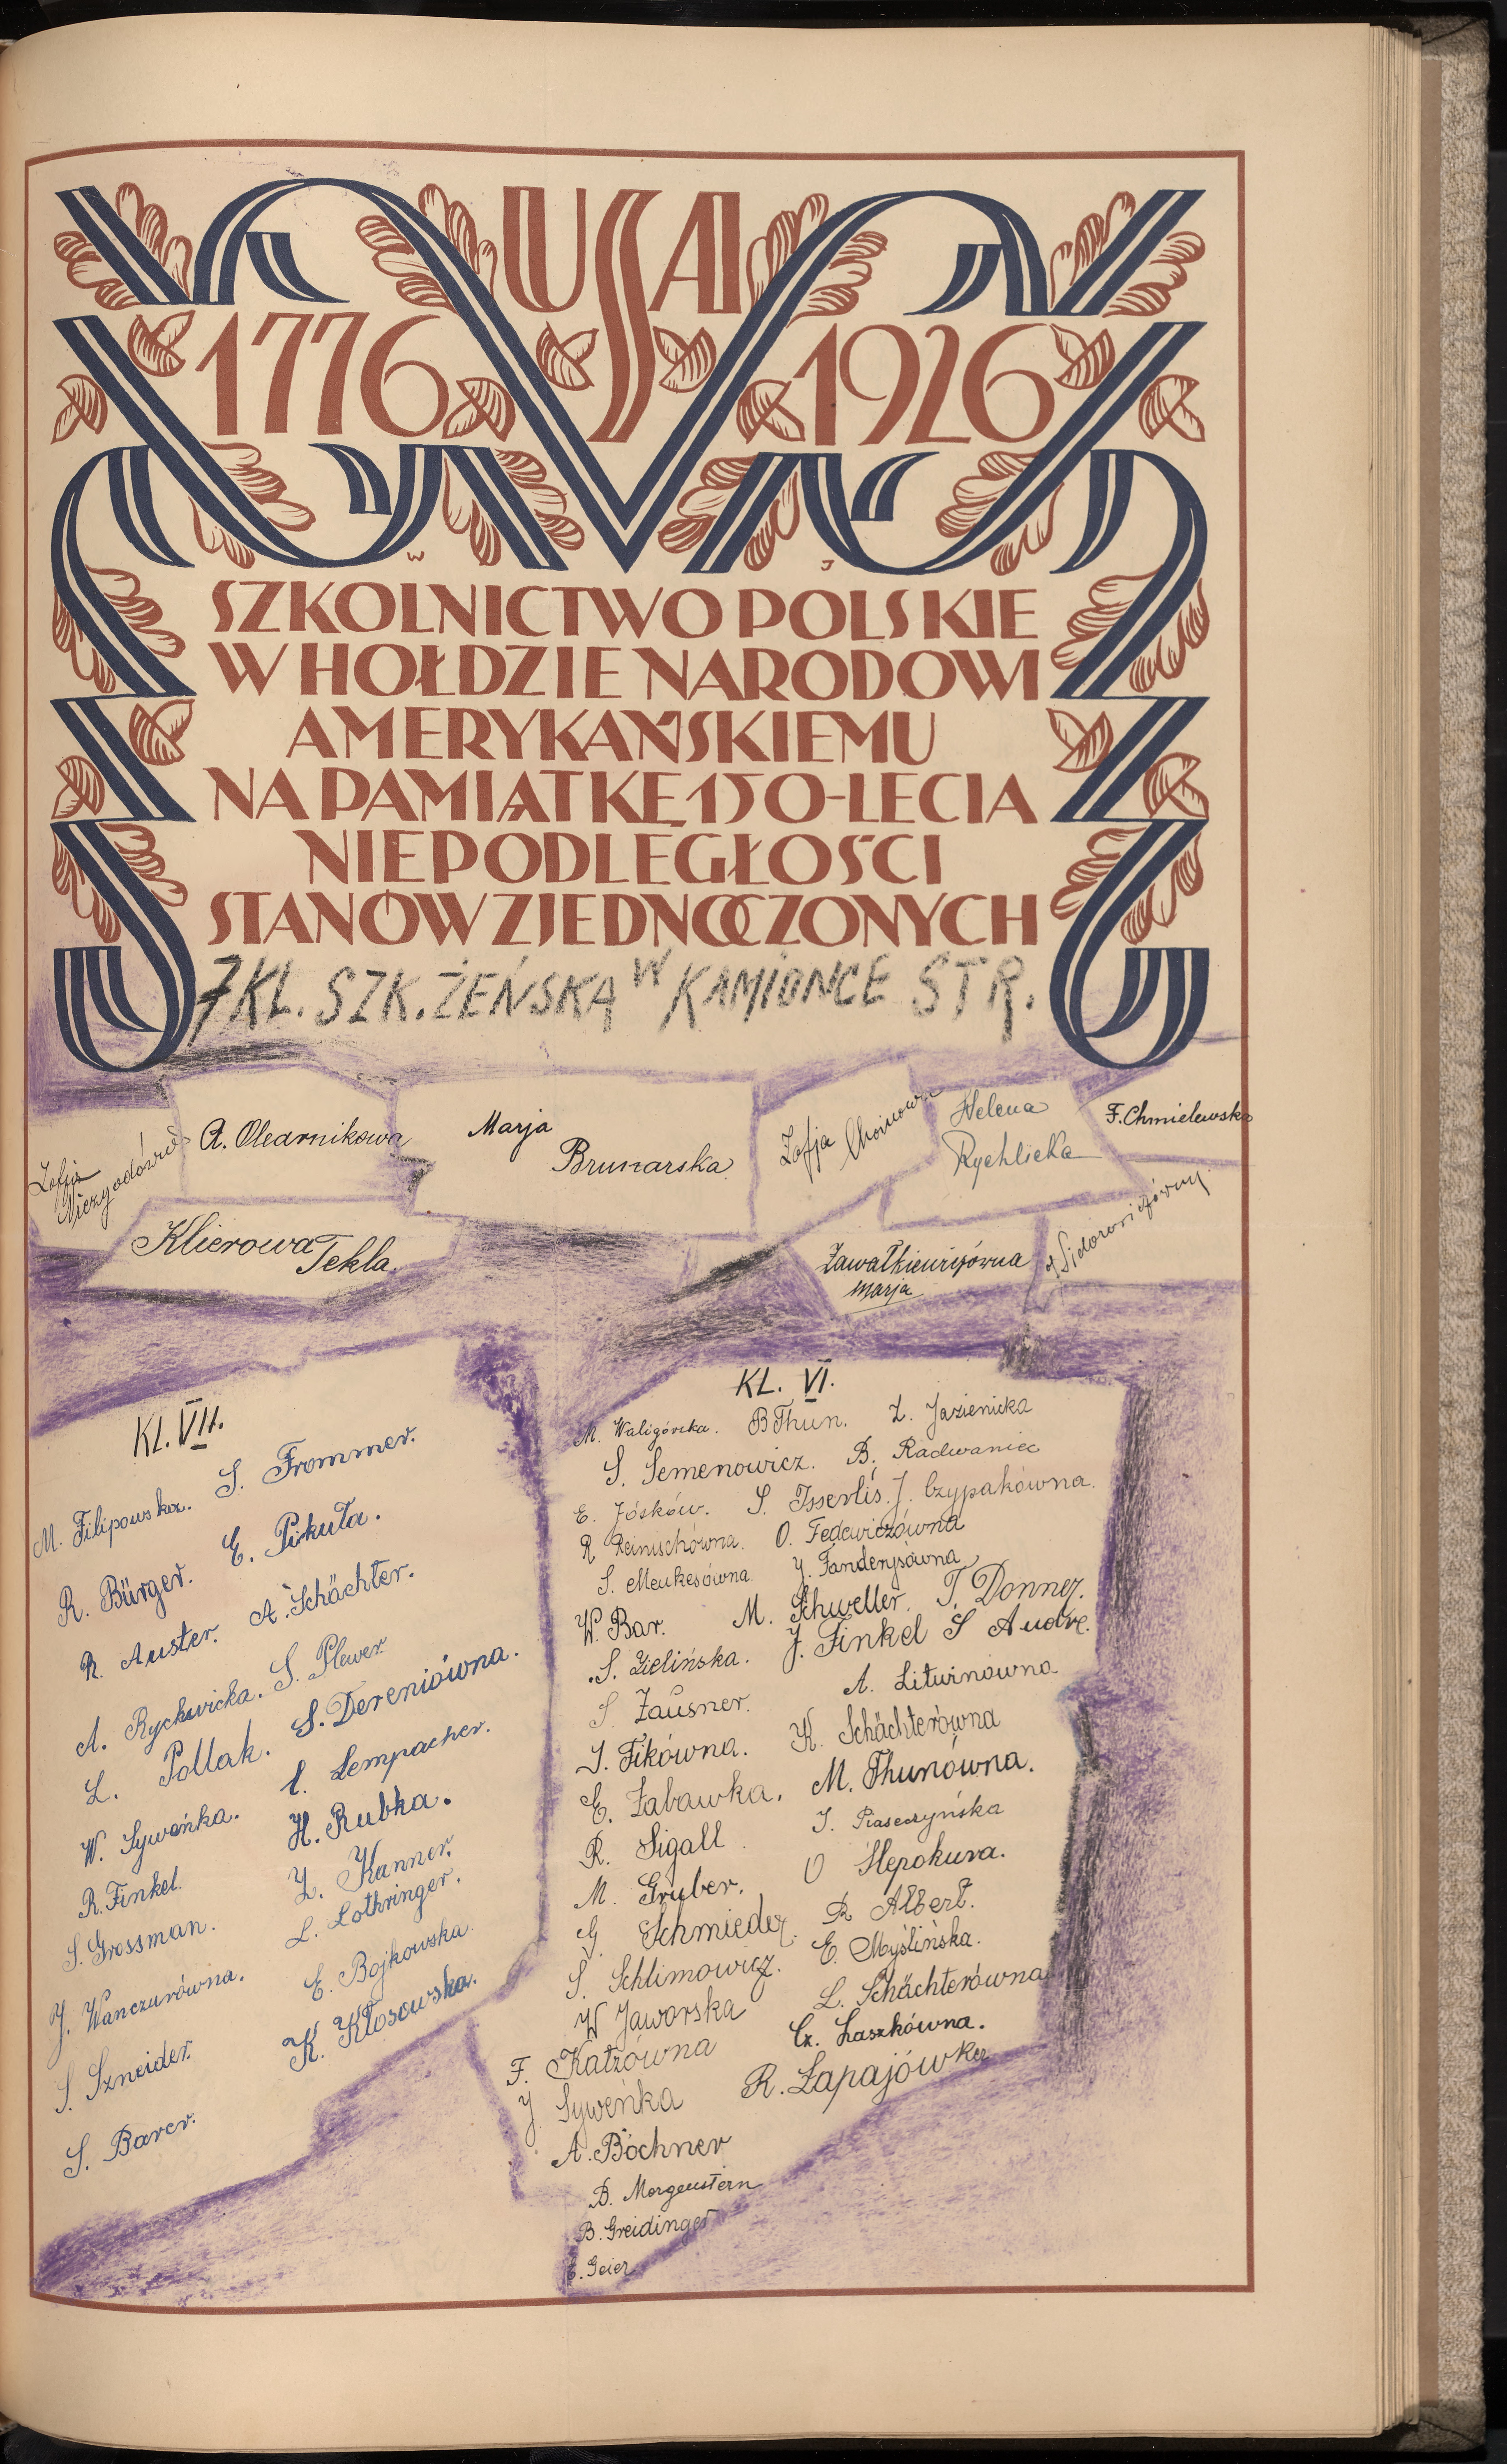 USA
1776 1926
W J
SZKOLNICTWO POLSKIE
W HOŁDZIE NARODOWI
AMERYKAŃSKIEMU
NA PAMIĄTKĘ 150-LECIA
NIEPODLEGŁOŚCI
STANÓW ZJEDNOCZONYCH
7 KL. SZK. ŻEŃSKA W KAMIONCE STR.
Zofja
A. Olearnikowa
Marja
Brunarska
Zofja
Helena
Rychlicka
F. Chmielewska
Klierowa Tekla
Zawałkiewiczówna
Marja
Sidorowiczówny
KL. VII.
M. Filipowska. S. Frommer.
R. Bürger. E. Pikuła.
R. Auster. A. Schächter.
A. Ryckwicka. S. Plewer.
L. Pollak. S. Dereniówna.
W. Syweńka. Lempacher.
R. Finkel. H. Rubka.
S. Grossman. Z. Kanner.
J. Wanczurówna. L. Lothringer.
S. Szneider. E. Bojkowska.
S. Barer. K. Kłosowska.
KL. VI.
M. Waligórska. B Thun. Z. Jazienicka
S. Semenowicz. B. Radwaniec
E. Jósków. S. Isserlis. J. Czypakówna.
R Reinischówna. O. Fedewiczówna
S. Meukesówna. J. Tanderysówna
W. Bar. M. Schweller. T. Donner.
S. Zielińska. J. Finkel S Andre.
S Zausner. A. Litwinówna
J. Fikówna. K. Schächterówna
E. Zabawka. M. Thunówna.
R. Sigall J. Piaseczyńska
M. Gruber. O Slepokura.
G. Schmieder. R Albert.
S. Schlimowicz. E. Myślińska.
W Jaworska L. Schächterówna
F. Katzówna Cz. Laszkówna.
J. Syweńka R. Łapajówka
A. Böchner
D. Morgenstern
B. Greidinger
E. Geier